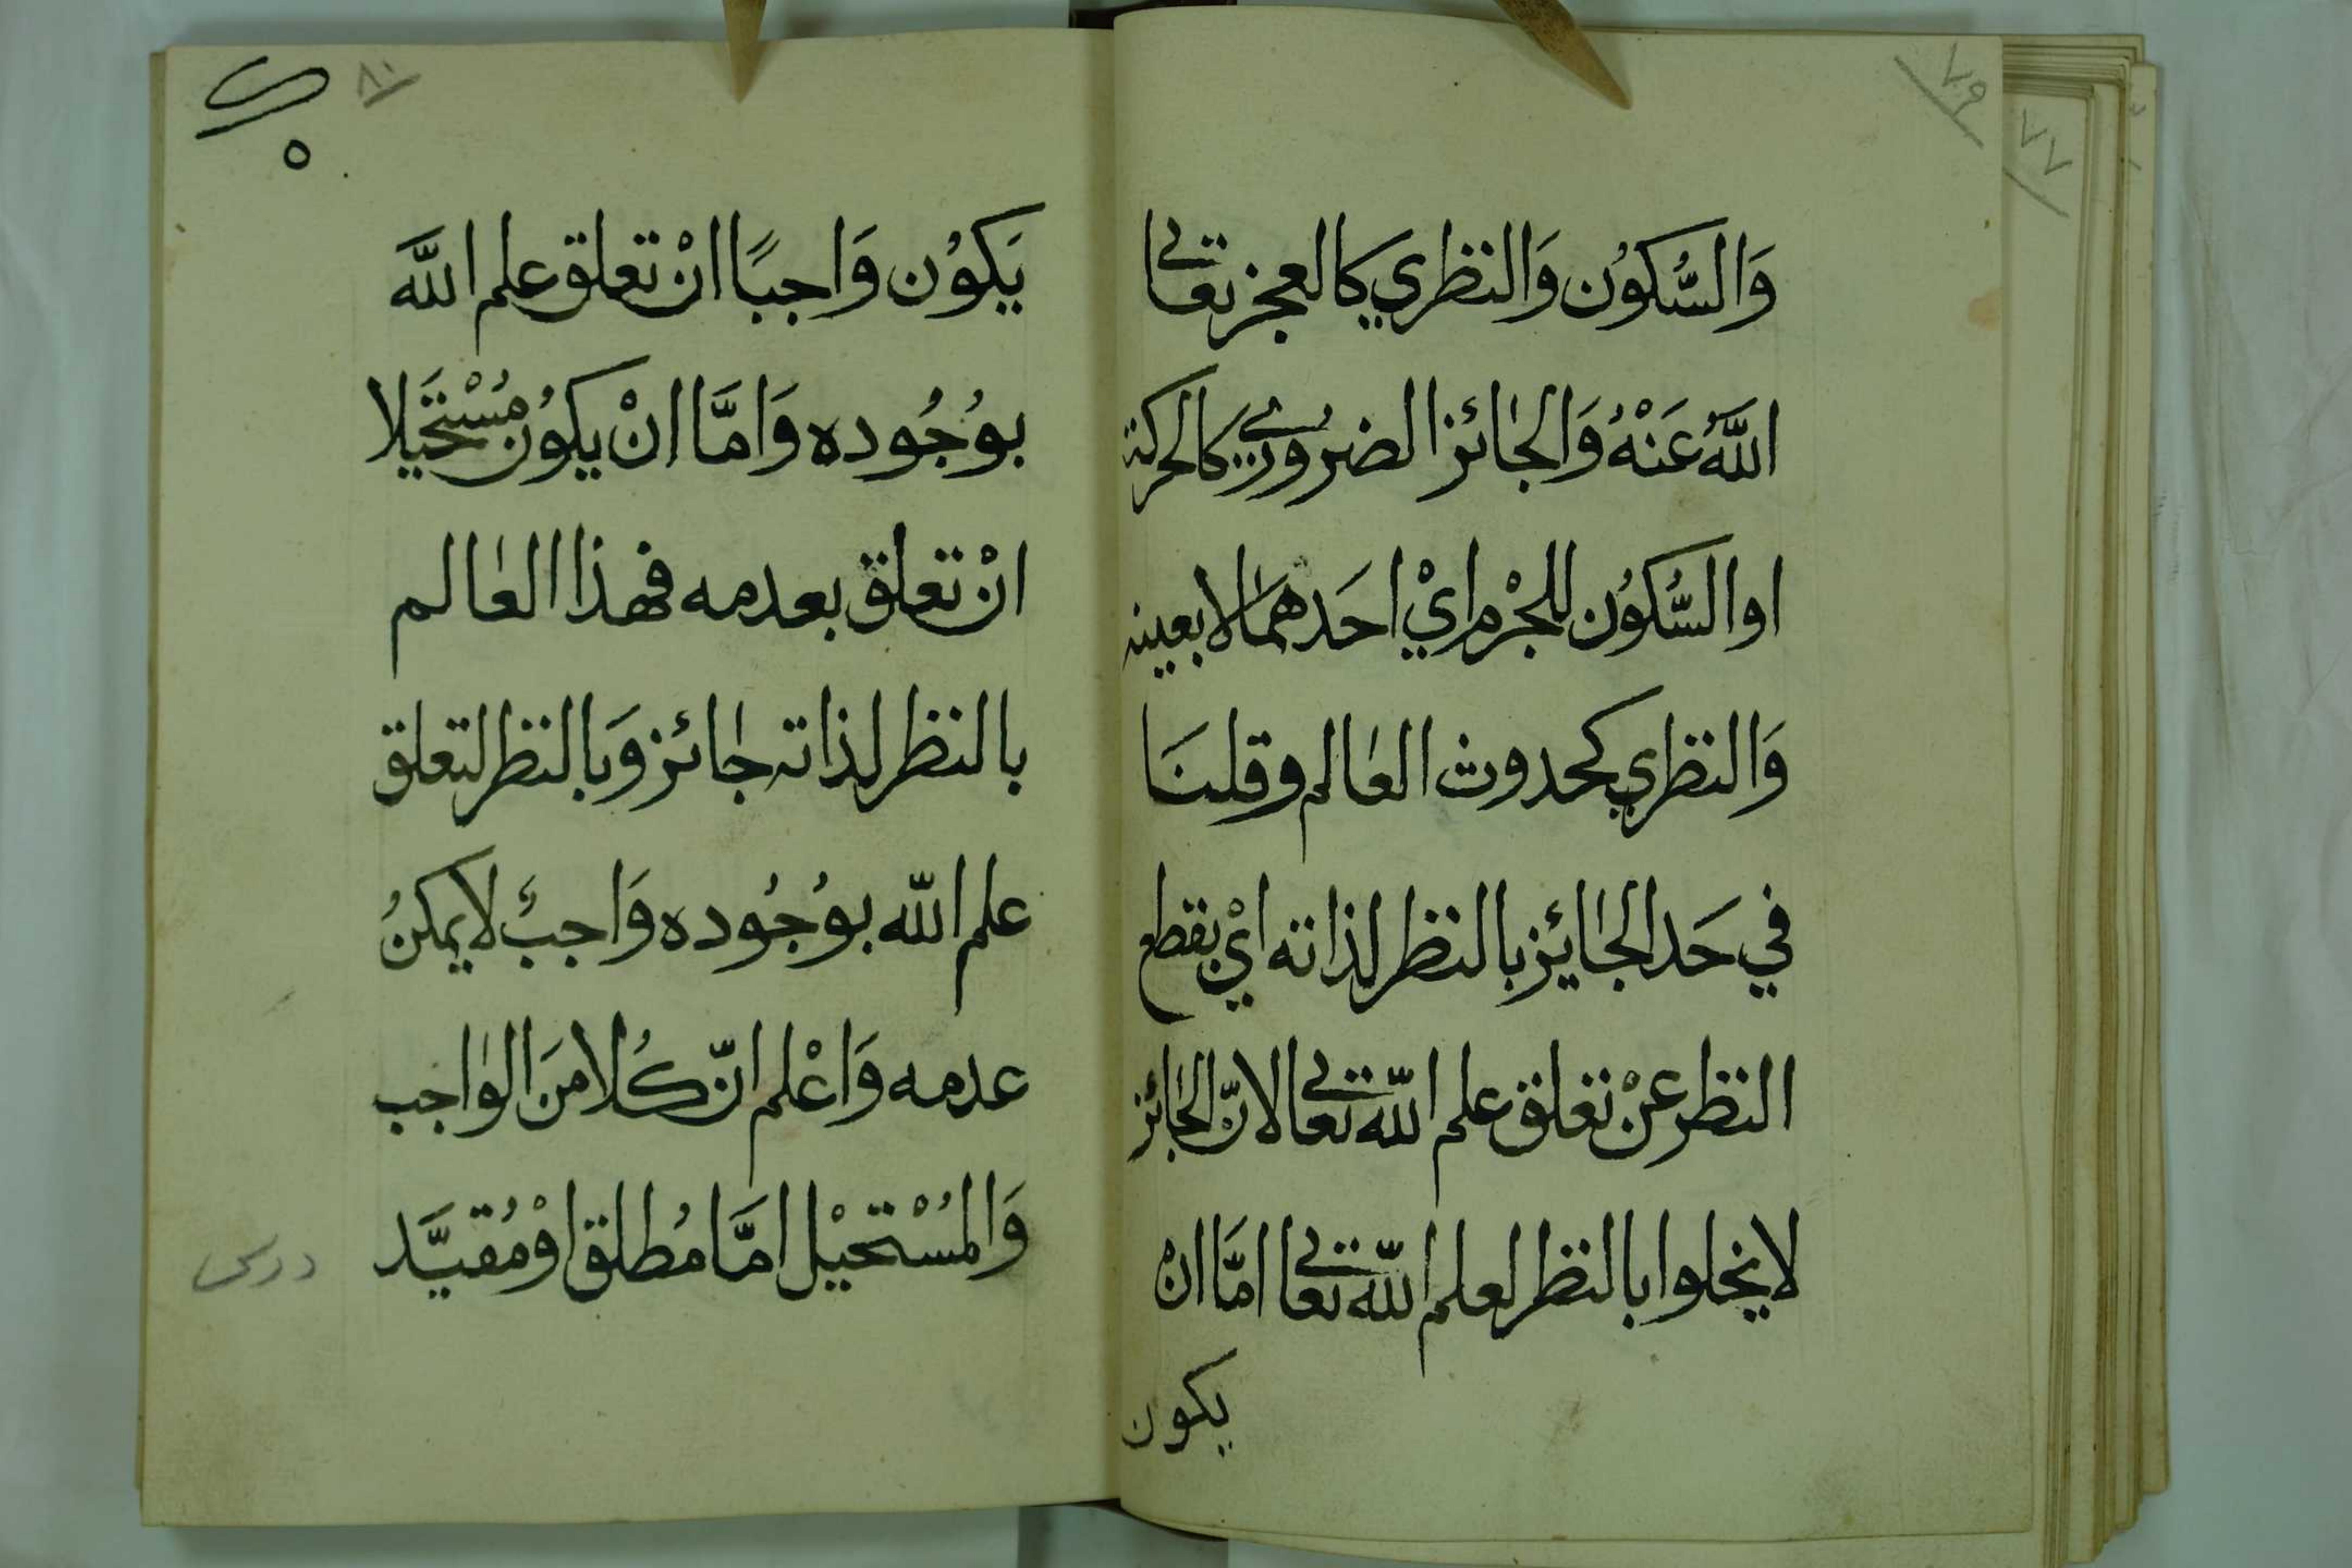 ٧٩
٧٧
وَالسُّكوُن وَالنظري كالعجز تعالى
اللَّهُ عَنْهُ وَالجائز الضرُوري كالحركة
او السُّكوُن للجْرم ايْ احَدهمَا لا بعينه
وَالنظري كحدوث العالم وقلنَا
في حَد الجائيز بالنظر لذاته ايْ بقطع
النظر عنْ تعلق علم اللّه تعالى لانّ الجائز
لا يخلوا بالنظر لعلم اللّه تعالى امَّا انْ
يكون
٨٠
٥
يَكوُن وَاجبًا انْ تعلق علم اللَّه
بوُجُوده وَامَّا انْ يكوُن مُسْتحَيلا
انْ تعلق بعدمه فهذا العالم
بالنظر لذاته جائز وَبالنظر لتعلق
علم اللّه بوُجُوده وَاجبٌ لا يمكنُ
عدمه وَاعْلم انّ كُلا منَ الواجب
وَالمُسْتحيْل امَّا مُطلق اوْ مُقيَّد